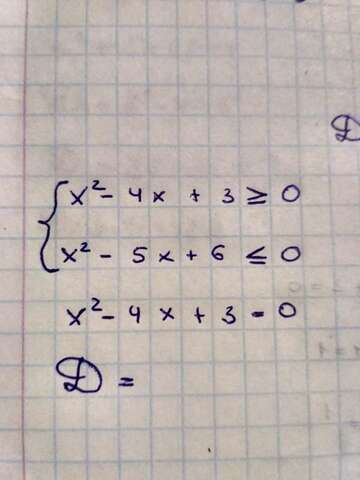 x² - 4x + 3 ≥ 0
x² - 5x + 6 ≤ 0
x² - 4x + 3 = 0
D =
D